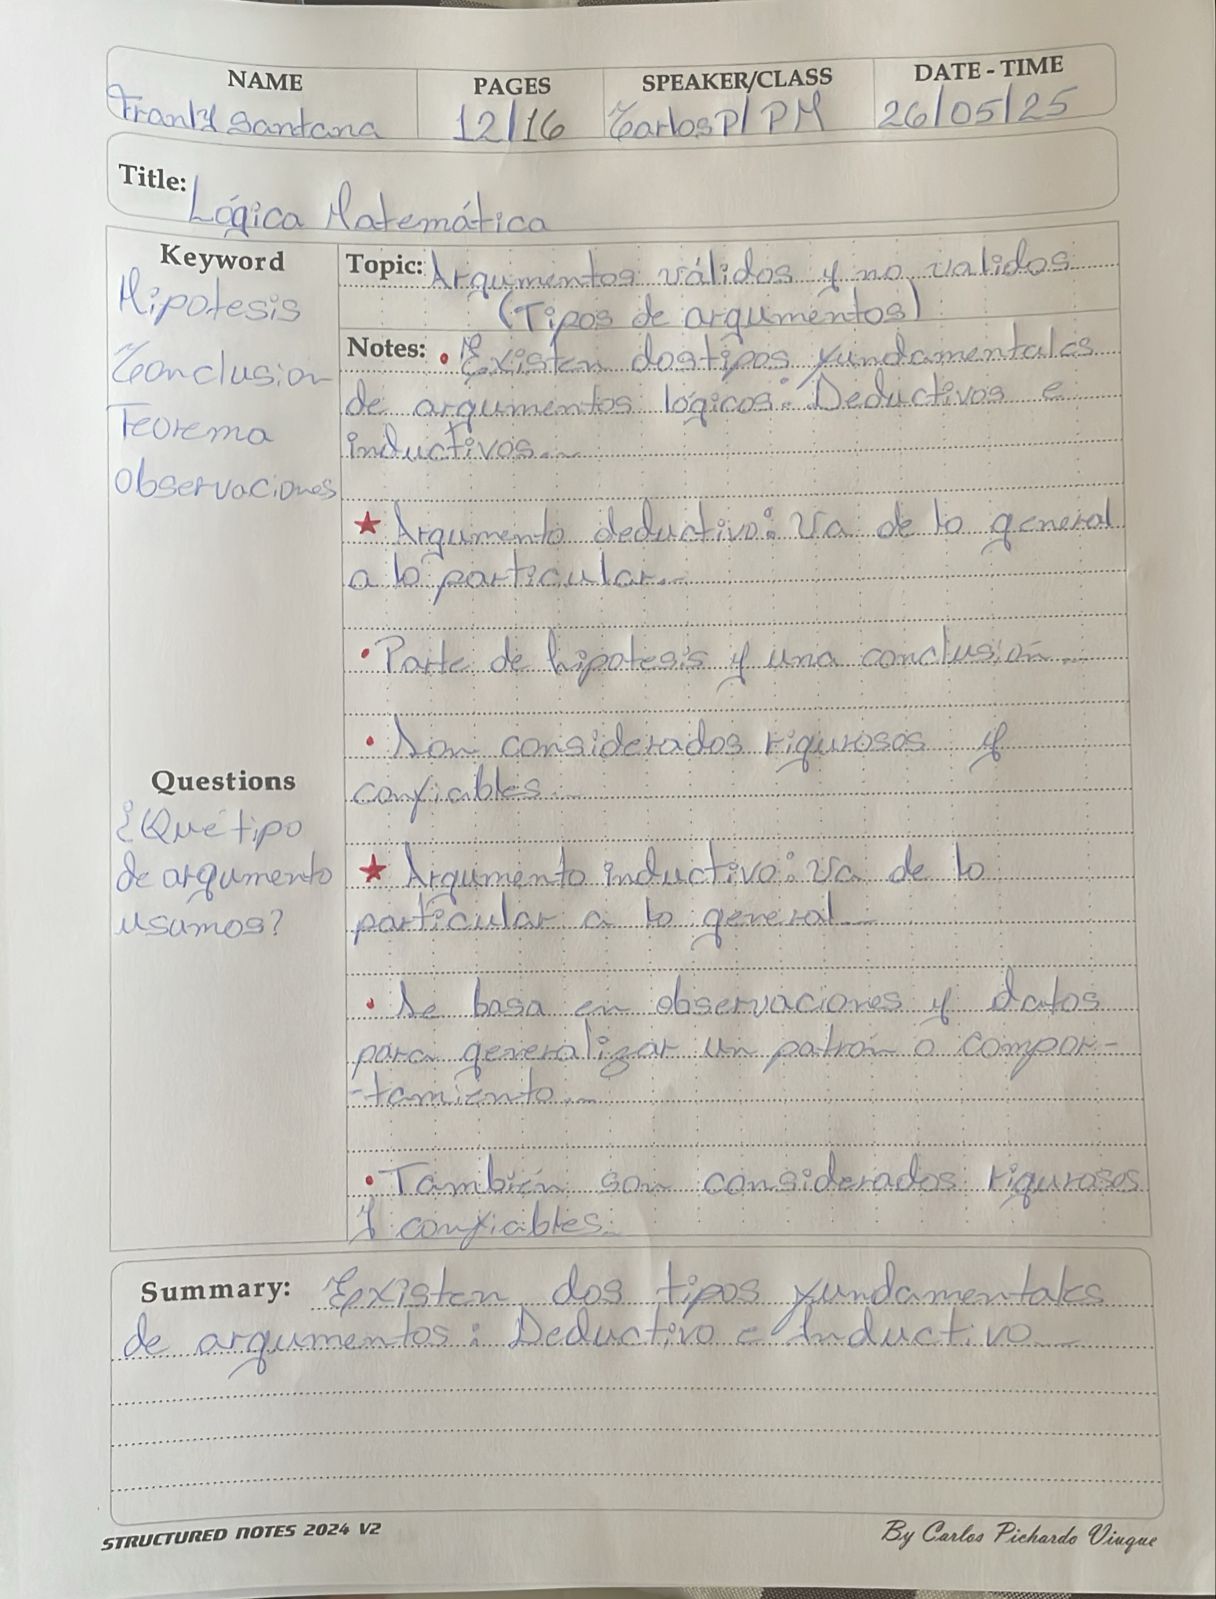 NAME PAGES SPEAKER/CLASS DATE - TIME
Franky Santana 12/16 CarlosP/PM 26/05/25
Title: Lógica Matemática
Keyword
Hipotesis
Conclusion
Teorema
Observaciones
Topic: Argumentos válidos y no validos
(Tipos de argumentos)
Notes: • Existen dos tipos fundamentales
de argumentos lógicos: Deductivos e
inductivos...
★ Argumento deductivo: Va de lo general
a lo particular...
• Parte de hipotesis y una conclusión...
• Son considerados rigurosos y
confiables...
★ Argumento inductivo: Va de lo
particular a lo general...
• Se basa en observaciones y datos
para generalizar un patrón o compor-
-tamiento...
• También son considerados rigurosos
y confiables.
Questions
¿Qué tipo
de argumento
usamos?
Summary: Existen dos tipos fundamentales
de argumentos: Deductivo e Inductivo...
STRUCTURED NOTES 2024 V2
By Carlos Pichardo Viuque